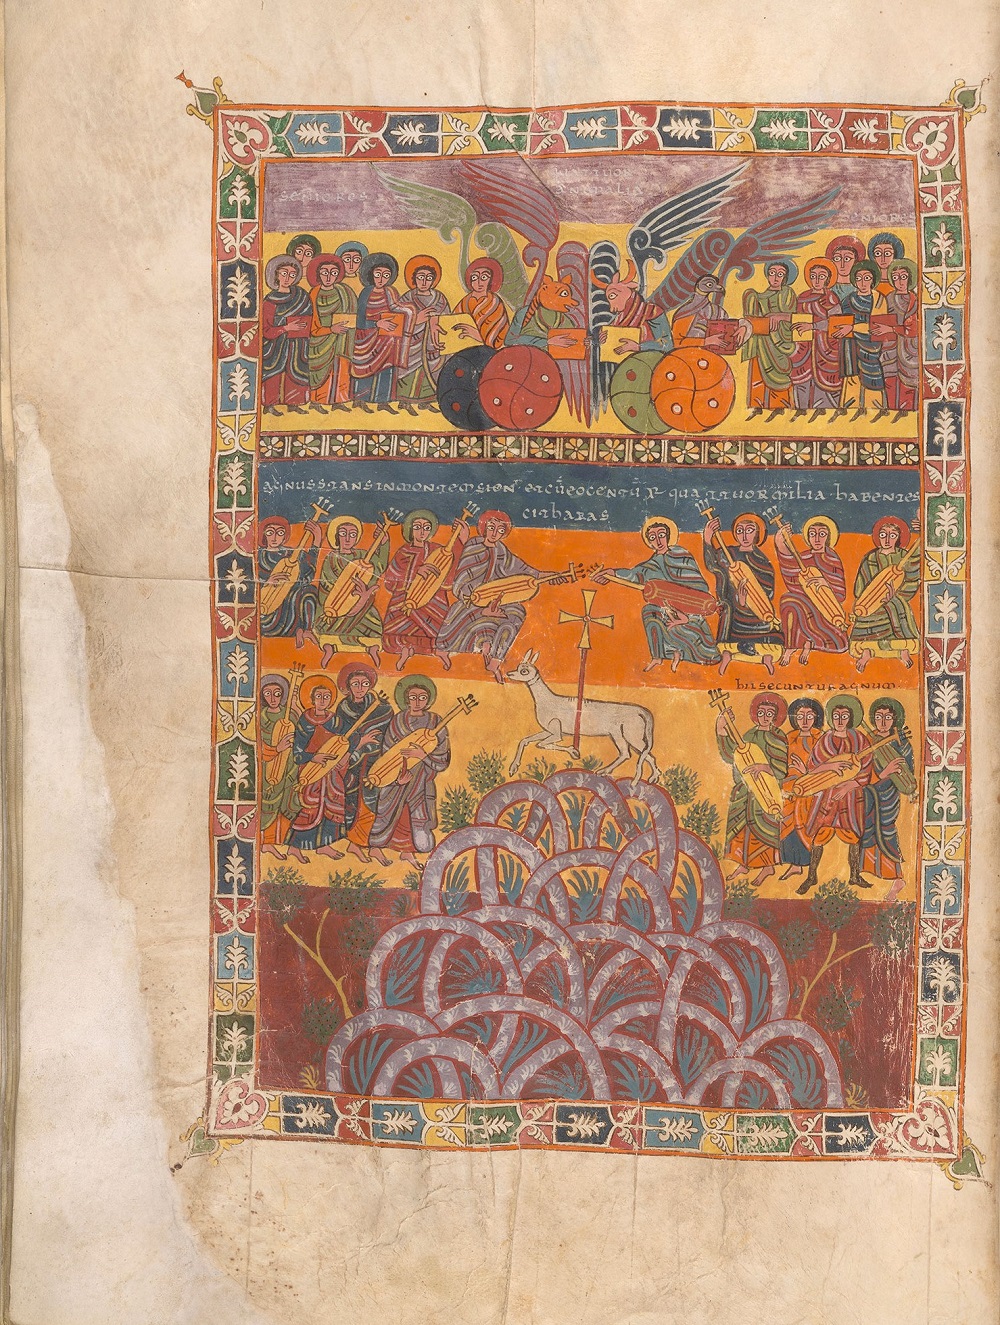 QUATTUOR
ANIMALIA
SENIORES
SENIORES
AGNUS STANS IN MONTEM SION ET CŪ EO CENTŪ XL QUATTUOR MILIA HABENTES
CITHARAS
HII SECUNTUR AGNUM